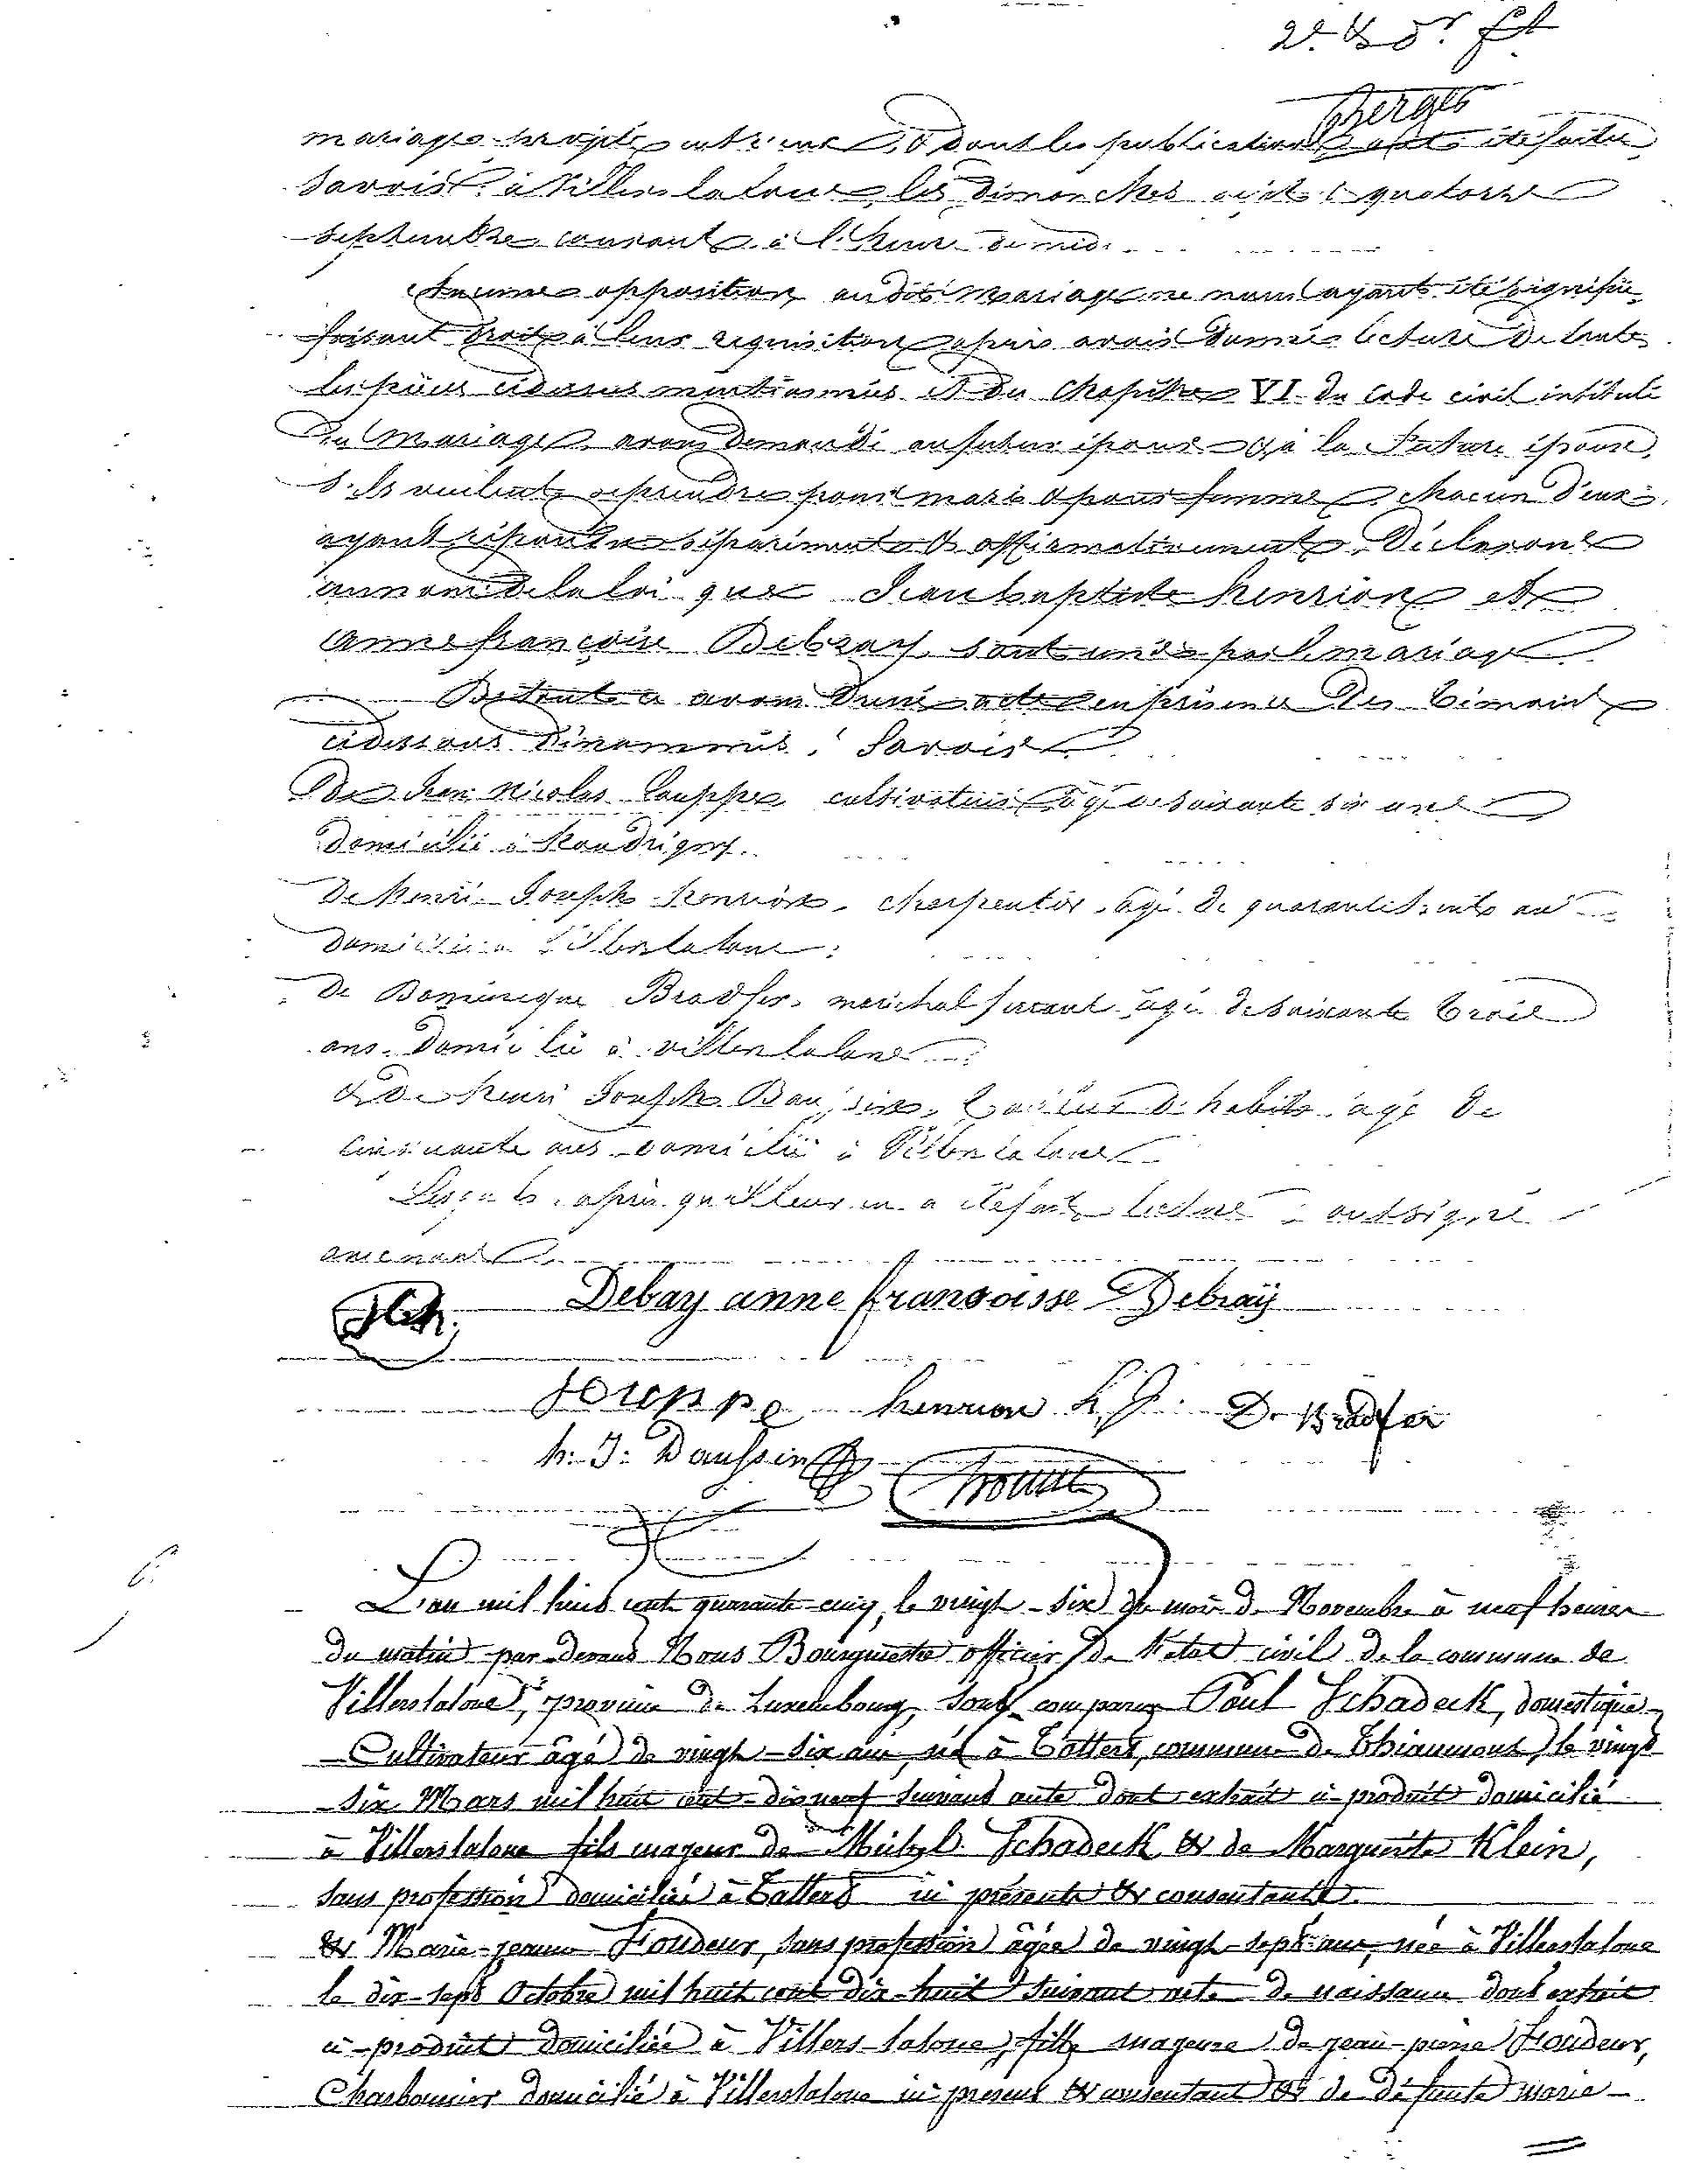 2e. & Dr. ft
Berger
mariage projeté entr'eux, & dont les publications ont été faites
Savoir: à Villers la loue, les dimanches sept & quatorze
septembre courant à l'heure de midi
Aucune opposition audit mariage ne nous ayant été signifiée
faisant droit à leur requisition, après avoir donné lecture de toutes
les pièces cidessus mentionnées et du chapitre VI du Code civil intitulé
Du Mariage, avons demandé au futur époux & à la Future épouse,
s'ils veulent se prendre pour mari & pour femme, chacun d'eux
ayant répondu séparément & affirmativement, Déclarons
au nom de la loi que Jean baptiste henrion et
anne françoise Debray sont unis par le mariage
De tout ce avons dressé acte en présence Des témoins
cidessous dénommés, Savoir
De Jean Nicolas Louppe cultivateur âgé de soixante six ans
Domicilié à houdrigny.
De henri Joseph henrion, charpentier, âgé de quarante ans
domicilié à Villers la loue;
De Dominique Bradfer, maréchal ferrant âgé de soixante trois
ans Domicilié à villers la loue;
& De henri Joseph Daussin, tailleur D'habits, agé De
cinquante ans domicilié à Villers la loue
Lesquels, après qu'il leur en a été fait lecture ont signé
avec nous
J bth. Debay anne fransoisse Debraÿ
Jouppe henrion h. J. D. Bradfer
h: J: Daussin
6.
L'an mil huit cent quarante cinq, le vingt-six du mois de Novembre à neuf heures
du matin par-devant Nous Bourgmestre officier de l'état civil de la commune de
Villerslaloue, province de Luxembourg, sont comparus Paul Schadeck, domestique
Cultivateur âgé de vingt-six ans, né à Tattert, commune de Thiaumont, le vingt
-six Mars mil huit cent-dix neuf suivant acte dont extrait ci-produit domicilié
à Villerslaloue fils majeur de Michel Schadeck & de Marguerite Klein,
sans profession domiciliée à Tattert ici présente & consentante.
& Marie-jeanne Fondeur, sans profession âgée de vingt-sept ans, née à Villerslaloue
le dix-sept Octobre mil huit cent dix-huit suivant acte de naissance dont extrait
ci-produit domiciliée à Villers-laloue, fille majeure de jean-pierre Fondeur,
Charbonnier domicilié à Villerslaloue ici présent & consentant & de défunte marie-